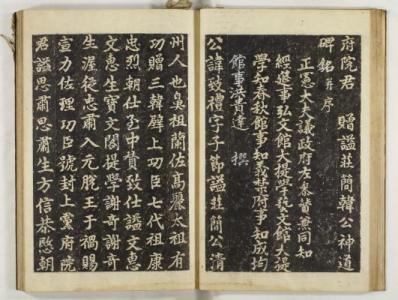 府院君　贈謚莊簡韓公神道
碑銘并序
正憲大夫議政府左叅賛無同知
經筵事弘文館大提學藝文館大提
學知春秋館事知義禁府事知成均
館事洪貴達　撰
公諱致禮字子節謚莊簡公清
州人也奧祖蘭佐高麗太祖有
功贈三韓壁上功臣七代祖康
忠烈朝仕至中賛致仕謚文惠
文惠生寶文閣提學謝奇謝奇
生渥從忠肅入元脫王于禍賜
宣力佐理功臣號封上黨府院
君謚思肅思肅生方信恭愍朝